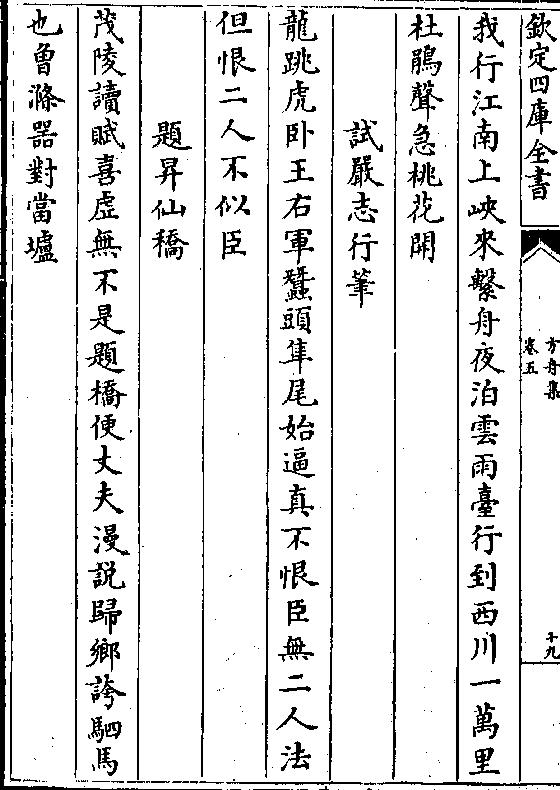 欽定四庫全書
方舟集
卷五
十九
我行江南上峽來繫舟夜泊雲雨臺行到西川一萬里
杜鵑聲急桃花開
試嚴志行筆
龍跳虎卧王右軍蠶頭隼尾始逼真不恨臣無二人法
但恨二人不似臣
題昇仙橋
茂陵讀賦喜虛無不是題橋便丈夫漫説歸鄉誇駟馬
也曾滌器對當壚